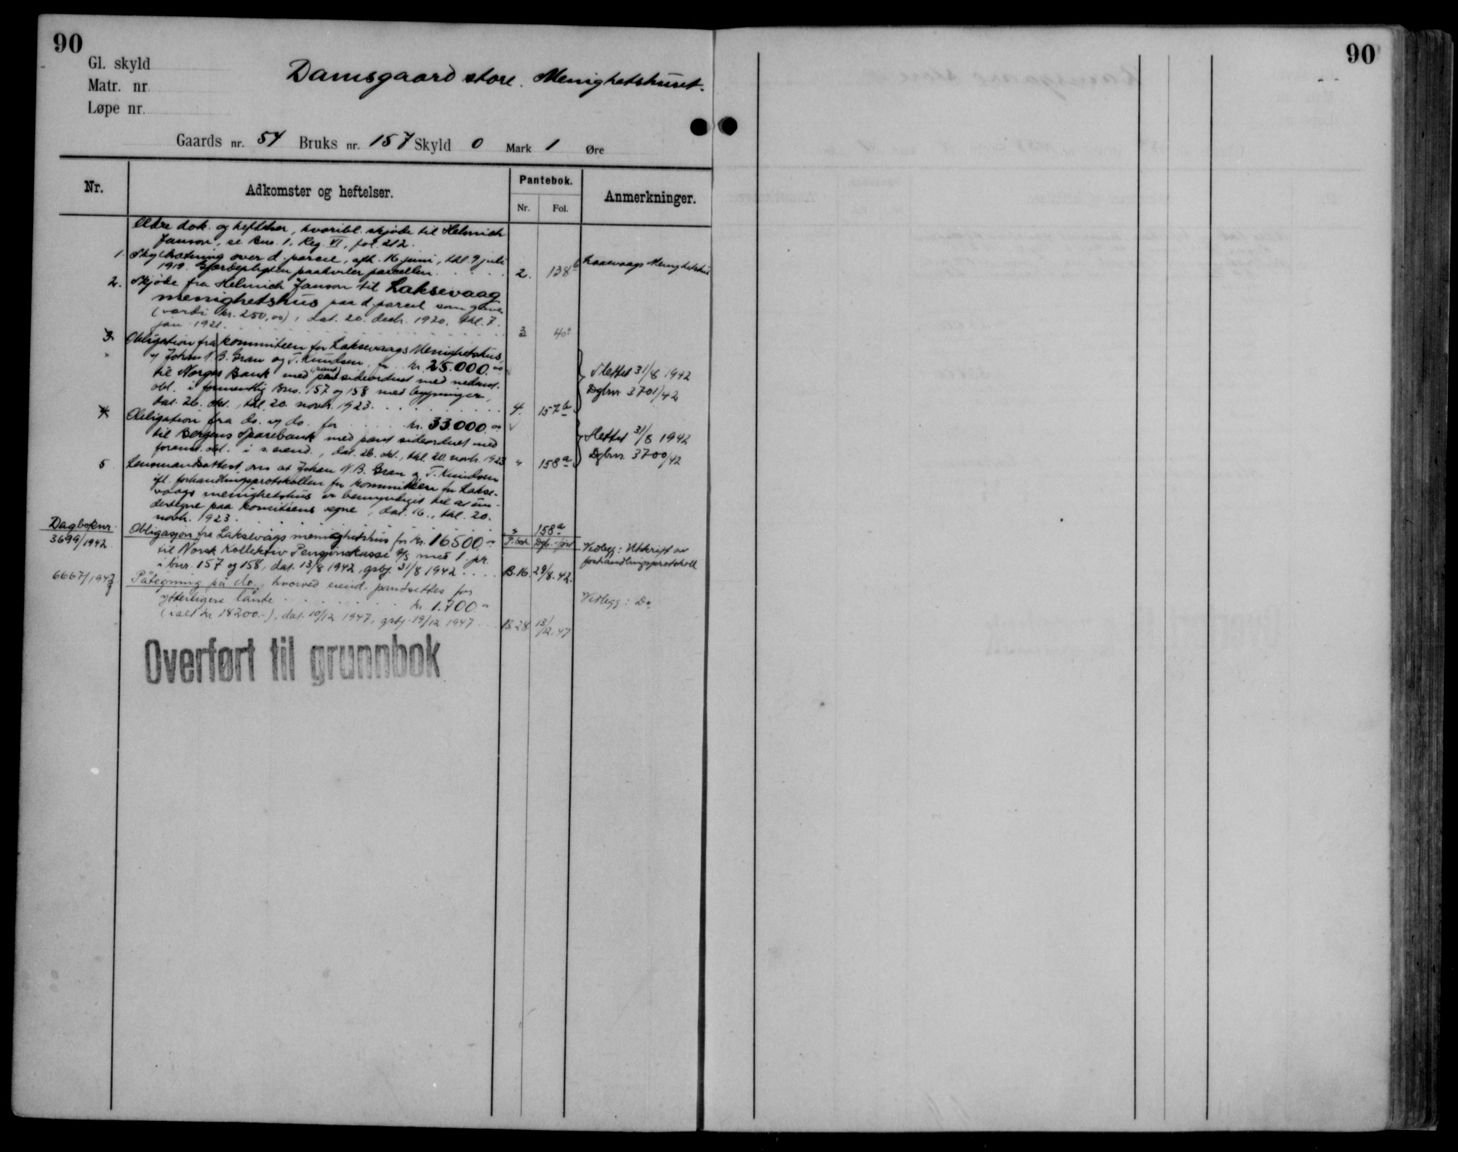 90
90
Gl. skyld
Matr. nr.
Løpe nr.
Damsgaard store. Menighetshuset.
Gaards nr. 54 Bruks nr. 157 Skyld 0 Mark 1 Øre
Nr.
Adkomster og heftelser.
Pantebok.
Nr. Fol.
Anmerkninger.
Ældre dok. og heftelser, hvoribl. skjøde til Helmich
Janson, se Bno. 1. Reg. VI, fol 212.
1. Skyldsetning over d. parcel, afh. 16 juni, thl. 9 juli
1919. Gjerdepligten paahviler parcellen. 2. 138b Laksevaags Menighetshus
2. Skjøde fra Helmich Janson til Laksevaag
menighetshus paa d. parcel som gave
(værdi kr. 250,00), dat. 20. decbr. 1920, thl. 7.
jan 1921. 3 40
3. Obligation fra kommiteen for Laksevaags Menighetshus
v/ Johan N. B. Gran og T. Knudsen for kr. 25.000,00
til Norges Bank med pant sideordnet med nedenst.
obl. i foranstaaende Bno. 157 og 158 med bygninger,
dat. 26. okt., thl. 20. novbr. 1923. 4. 157b
Slettet 31/8 1942
Dgbnr 3701/42
4. Obligation fra do. og do. for kr. 33000,00
til Bergens Sparebank med pant sideordnet med
foranst. obl. i s. eiend., dat. 26. okt., thl. 20. novbr. 1923 " 158a
Slettet 31/8 1942
Dgbnr. 3700/42
5 Lensmandsattest om at Johan N. B. Gran og T. Knudsen
ifl. forhandlingsprotokollen for kommitteen for Lakse-
vaags menighetshus er bemyndiget til at un-
dertegne paa komiteens vegne, dat. 16., thl. 20.
novbr. 1923. " 158a
Dagboknr.
3699/1942 Obligasjon fra Laksevågs menighetshus for kr. 16500,"
P.bok Dgb.-ført
til Norsk Kollektiv Pensjonskasse A/S med 1 pr.
i bnr. 157 og 158, dat. 13/8 1942, gsbj 31/8 1942 B.16. 29/8.42.
Vedlegg: Utskrift av
forhandlingsprotokoll
6667/1947 Påtegning på do., hvorved eiend. pandsettes for
ytterligere lånte kr. 1.700 "
(ialt kr 18200.-), dat. 10/12 1947, gsbj. 19/12 1947 B 28 13/12.47
Vedlegg: Do
Overført til grunnbok